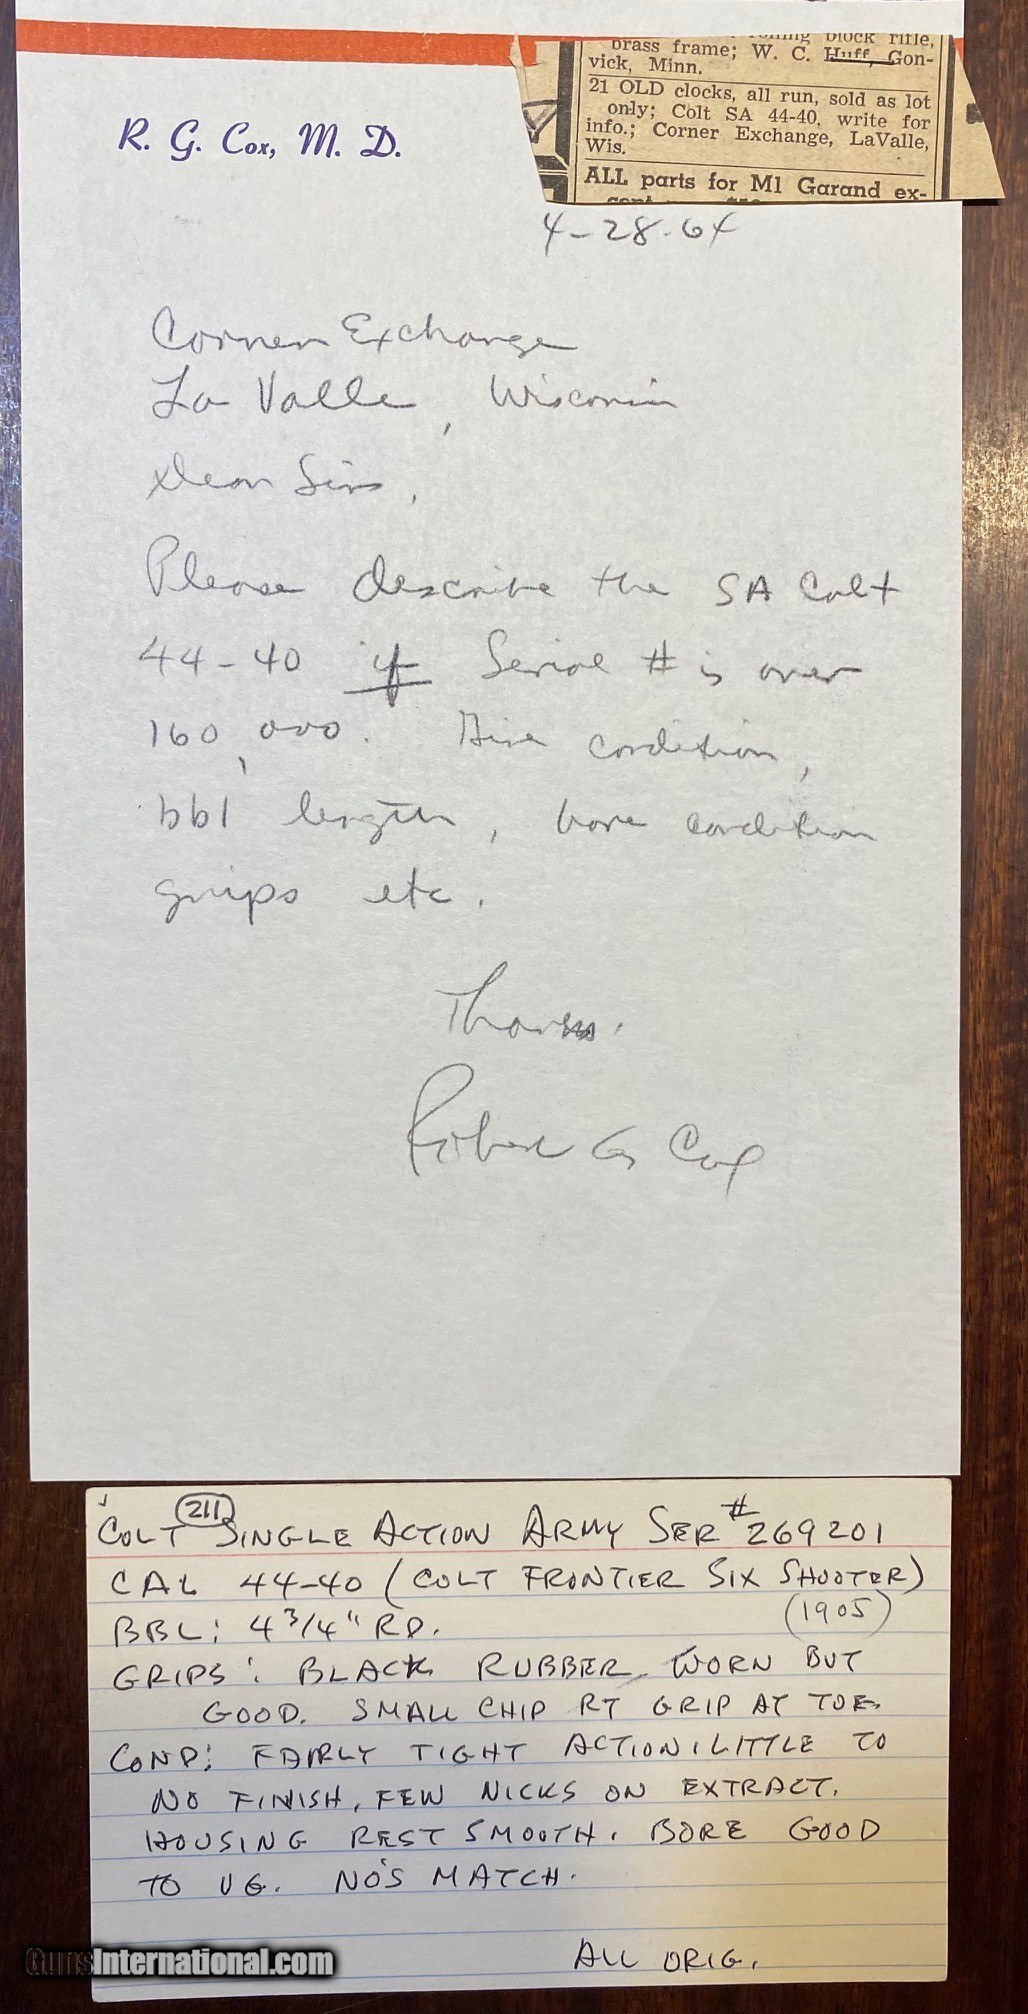 R. G. Cox, M. D.
rolling block rifle,
brass frame; W. C. Huff, Gon-
vick, Minn.
21 OLD clocks, all run, sold as lot
only; Colt SA 44-40, write for
info.; Corner Exchange, LaValle,
Wis.
ALL parts for M1 Garand ex-
4-28-64
Corner Exchange
La Valle, Wisconsin
Dear Sirs,
Please describe the SA Colt
44-40 if Serial # is over
160,000. Give condition,
bbl length, bore condition
grips etc.
Thanks.
Robert G Cox
211
COLT SINGLE ACTION ARMY SER # 269201
CAL 44-40 (COLT FRONTIER SIX SHOOTER)
(1905)
BBL: 4 3/4" RD.
GRIPS: BLACK RUBBER WORN BUT
GOOD. SMALL CHIP RT GRIP AT TOE.
COND: FAIRLY TIGHT ACTION, LITTLE TO
NO FINISH, FEW NICKS ON EXTRACT.
HOUSING REST SMOOTH. BORE GOOD
TO VG. NO'S MATCH.
ALL ORIG.
GunsInternational.com